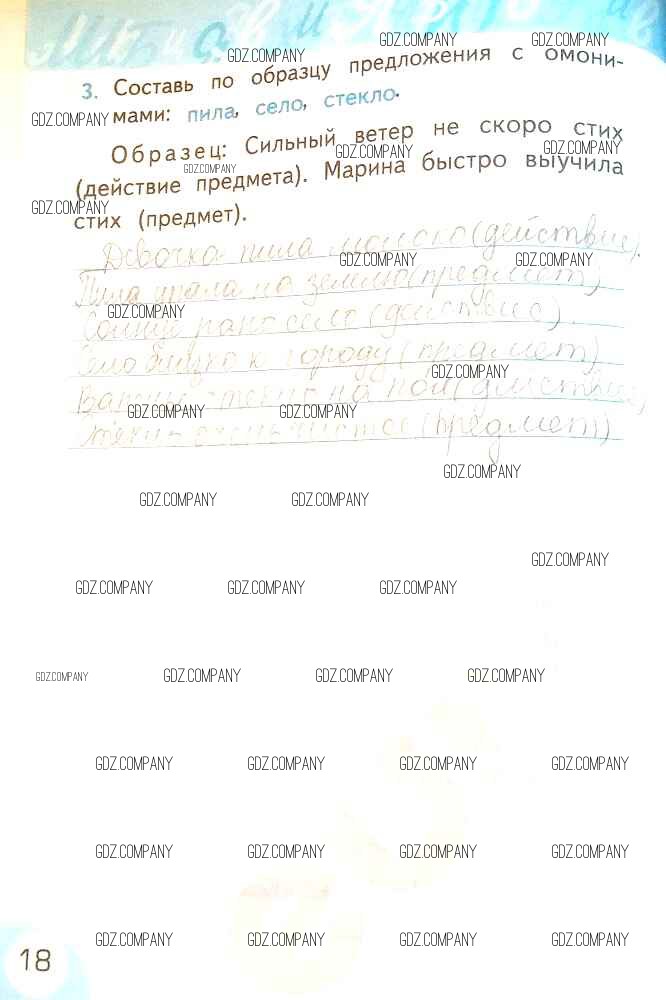 GDZ.COMPANY GDZ.COMPANY GDZ.COMPANY
3. Составь по образцу предложения с омони-
GDZ.COMPANY мами: пила, село, стекло.
Образец: Сильный ветер не скоро стих
GDZ.COMPANY GDZ.COMPANY GDZ.COMPANY
(действие предмета). Марина быстро выучила
GDZ.COMPANY стих (предмет).
Девочка пила молоко (действие).
GDZ.COMPANY GDZ.COMPANY
Пила упала на землю (предмет)
GDZ.COMPANY
рано село (действие)
Село близко к городу (предмет)
GDZ.COMPANY
на пол (действие)
GDZ.COMPANY GDZ.COMPANY
очень чистое (предмет)
GDZ.COMPANY
GDZ.COMPANY GDZ.COMPANY
GDZ.COMPANY
GDZ.COMPANY GDZ.COMPANY GDZ.COMPANY
GDZ.COMPANY GDZ.COMPANY GDZ.COMPANY GDZ.COMPANY
GDZ.COMPANY GDZ.COMPANY GDZ.COMPANY GDZ.COMPANY
GDZ.COMPANY GDZ.COMPANY GDZ.COMPANY GDZ.COMPANY
GDZ.COMPANY GDZ.COMPANY GDZ.COMPANY GDZ.COMPANY
18